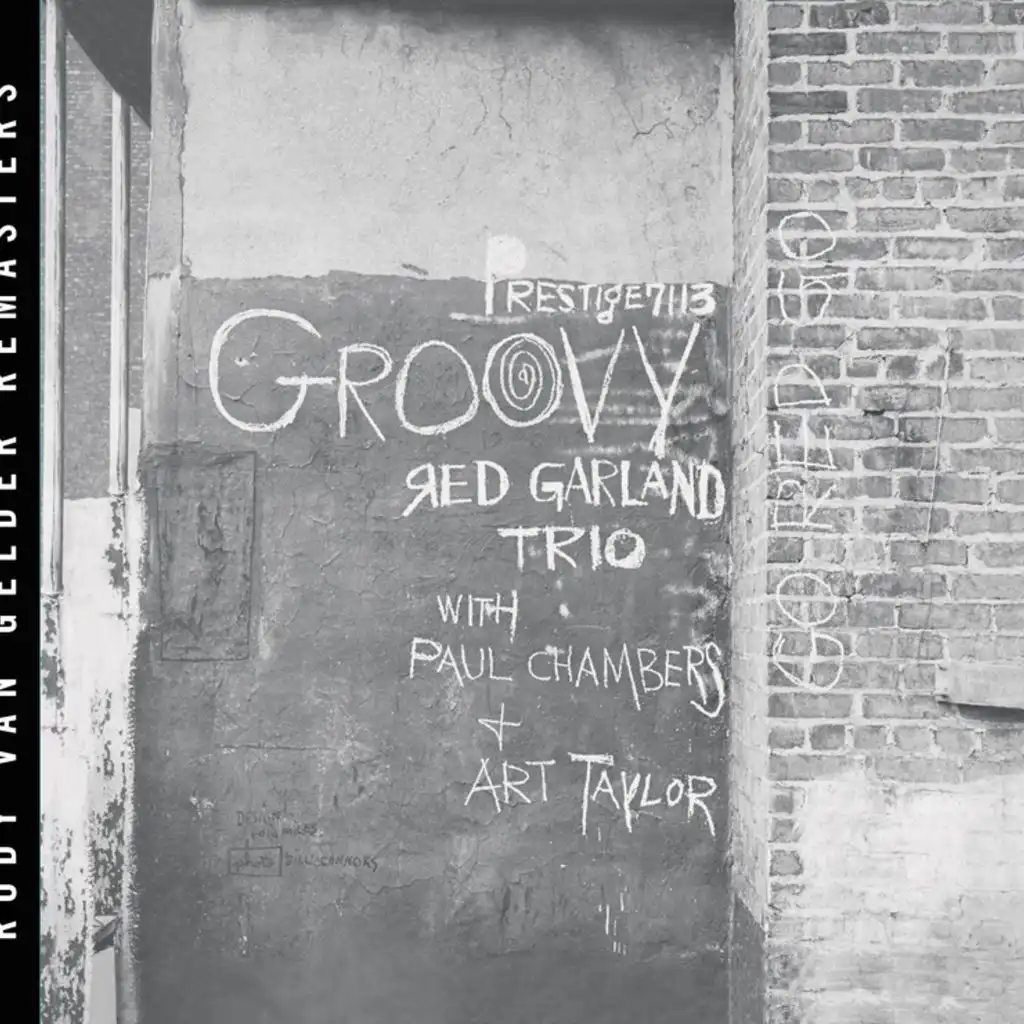 RUDY VAN GELDER REMASTERS
PRESTIGE 7113
GROOVY
RED GARLAND
TRIO
WITH
PAUL CHAMBERS
+
ART TAYLOR
GO RED GO
DESIGN
photo BILL CONNORS